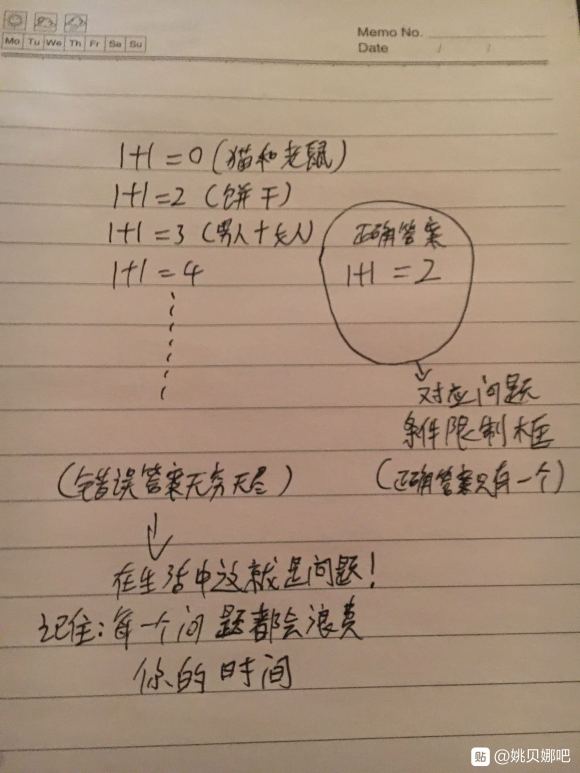 Memo No.
Mo Tu We Th Fr Sa Su
Date / /
1+1=0(猫和老鼠)
1+1=2(饼干)
1+1=3(男人+女人)
正确答案
1+1=4
1+1=2
对应问题
条件限制框
(错误答案无穷无尽)
(正确答案只有一个)
在生活中这就是问题!
记住:每一个问题都会浪费
你的时间
贴 @姚贝娜吧